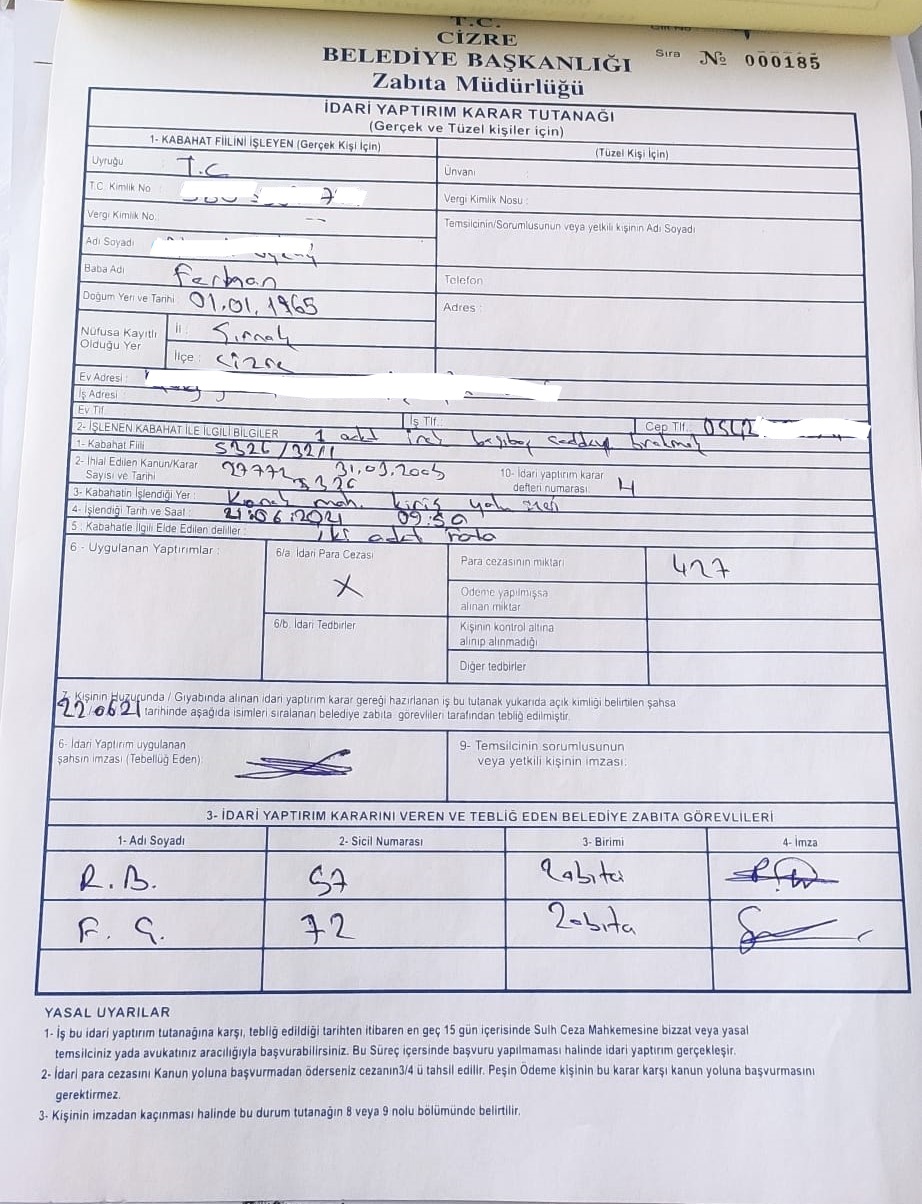 T.C.
CİZRE
BELEDİYE BAŞKANLIĞI
Zabıta Müdürlüğü
Sıra No 000185
İDARİ YAPTIRIM KARAR TUTANAĞI
(Gerçek ve Tüzel kişiler için)
1- KABAHAT FİİLİNİ İŞLEYEN (Gerçek Kişi İçin)
(Tüzel Kişi İçin)
Uyruğu : T.C
Ünvanı :
T.C. Kimlik No : 7
Vergi Kimlik Nosu :
Vergi Kimlik No. : --
Temsilcinin/Sorumlusunun veya yetkili kişinin Adı Soyadı
Adı Soyadı
Baba Adı Ferhan
Telefon
Doğum Yeri ve Tarihi : 01.01.1965
Adres :
Nüfusa Kayıtlı Olduğu Yer
İl : Şırnak
İlçe : Cizre
Ev Adresi :
İş Adresi
Ev Tlf.
İş Tlf.
Cep Tlf. 0542
2- İŞLENEN KABAHAT İLE İLGİLİ BİLGİLER 1 adet inek başıboş caddeye bırakmak
1- Kabahat Fiili 5326/32/1
2- İhlal Edilen Kanun/Karar Sayısı ve Tarihi 27772 31.03.2005 5326
10- İdari yaptırım karar defteri numarası: 4
3- Kabahatin İşlendiği Yer : Konak mah. giriş yolu üzeri
4- İşlendiği Tarih ve Saat : 21.06.2021 09:50
5- Kabahatle İlgili Elde Edilen deliller : iki adet foto
6 - Uygulanan Yaptırımlar :
6/a. İdari Para Cezası
X
Para cezasının miktarı
427
Ödeme yapılmışsa alınan miktar
6/b. İdari Tedbirler
Kişinin kontrol altına alınıp alınmadığı
Diğer tedbirler
7. Kişinin Huzurunda / Gıyabında alınan idari yaptırım karar gereği hazırlanan iş bu tutanak yukarıda açık kimliği belirtilen şahsa
22.06.21 tarihinde aşağıda isimleri sıralanan belediye zabıta görevlileri tarafından tebliğ edilmiştir.
6- İdari Yaptırım uygulanan
şahsın imzası (Tebellüğ Eden):
9- Temsilcinin sorumlusunun
veya yetkili kişinin imzası:
3- İDARİ YAPTIRIM KARARINI VEREN VE TEBLİĞ EDEN BELEDİYE ZABITA GÖREVLİLERİ
1- Adı Soyadı 2- Sicil Numarası 3- Birimi 4- İmza
R.B. 57 Zabıta
F. G. 72 Zabıta
YASAL UYARILAR
1- İş bu idari yaptırım tutanağına karşı, tebliğ edildiği tarihten itibaren en geç 15 gün içerisinde Sulh Ceza Mahkemesine bizzat veya yasal
temsilciniz yada avukatınız aracılığıyla başvurabilirsiniz. Bu Süreç içersinde başvuru yapılmaması halinde idari yaptırım gerçekleşir.
2- İdari para cezasını Kanun yoluna başvurmadan öderseniz cezanın3/4 ü tahsil edilir. Peşin Ödeme kişinin bu karar karşı kanun yoluna başvurmasını
gerektirmez.
3- Kişinin imzadan kaçınması halinde bu durum tutanağın 8 veya 9 nolu bölümünde belirtilir.